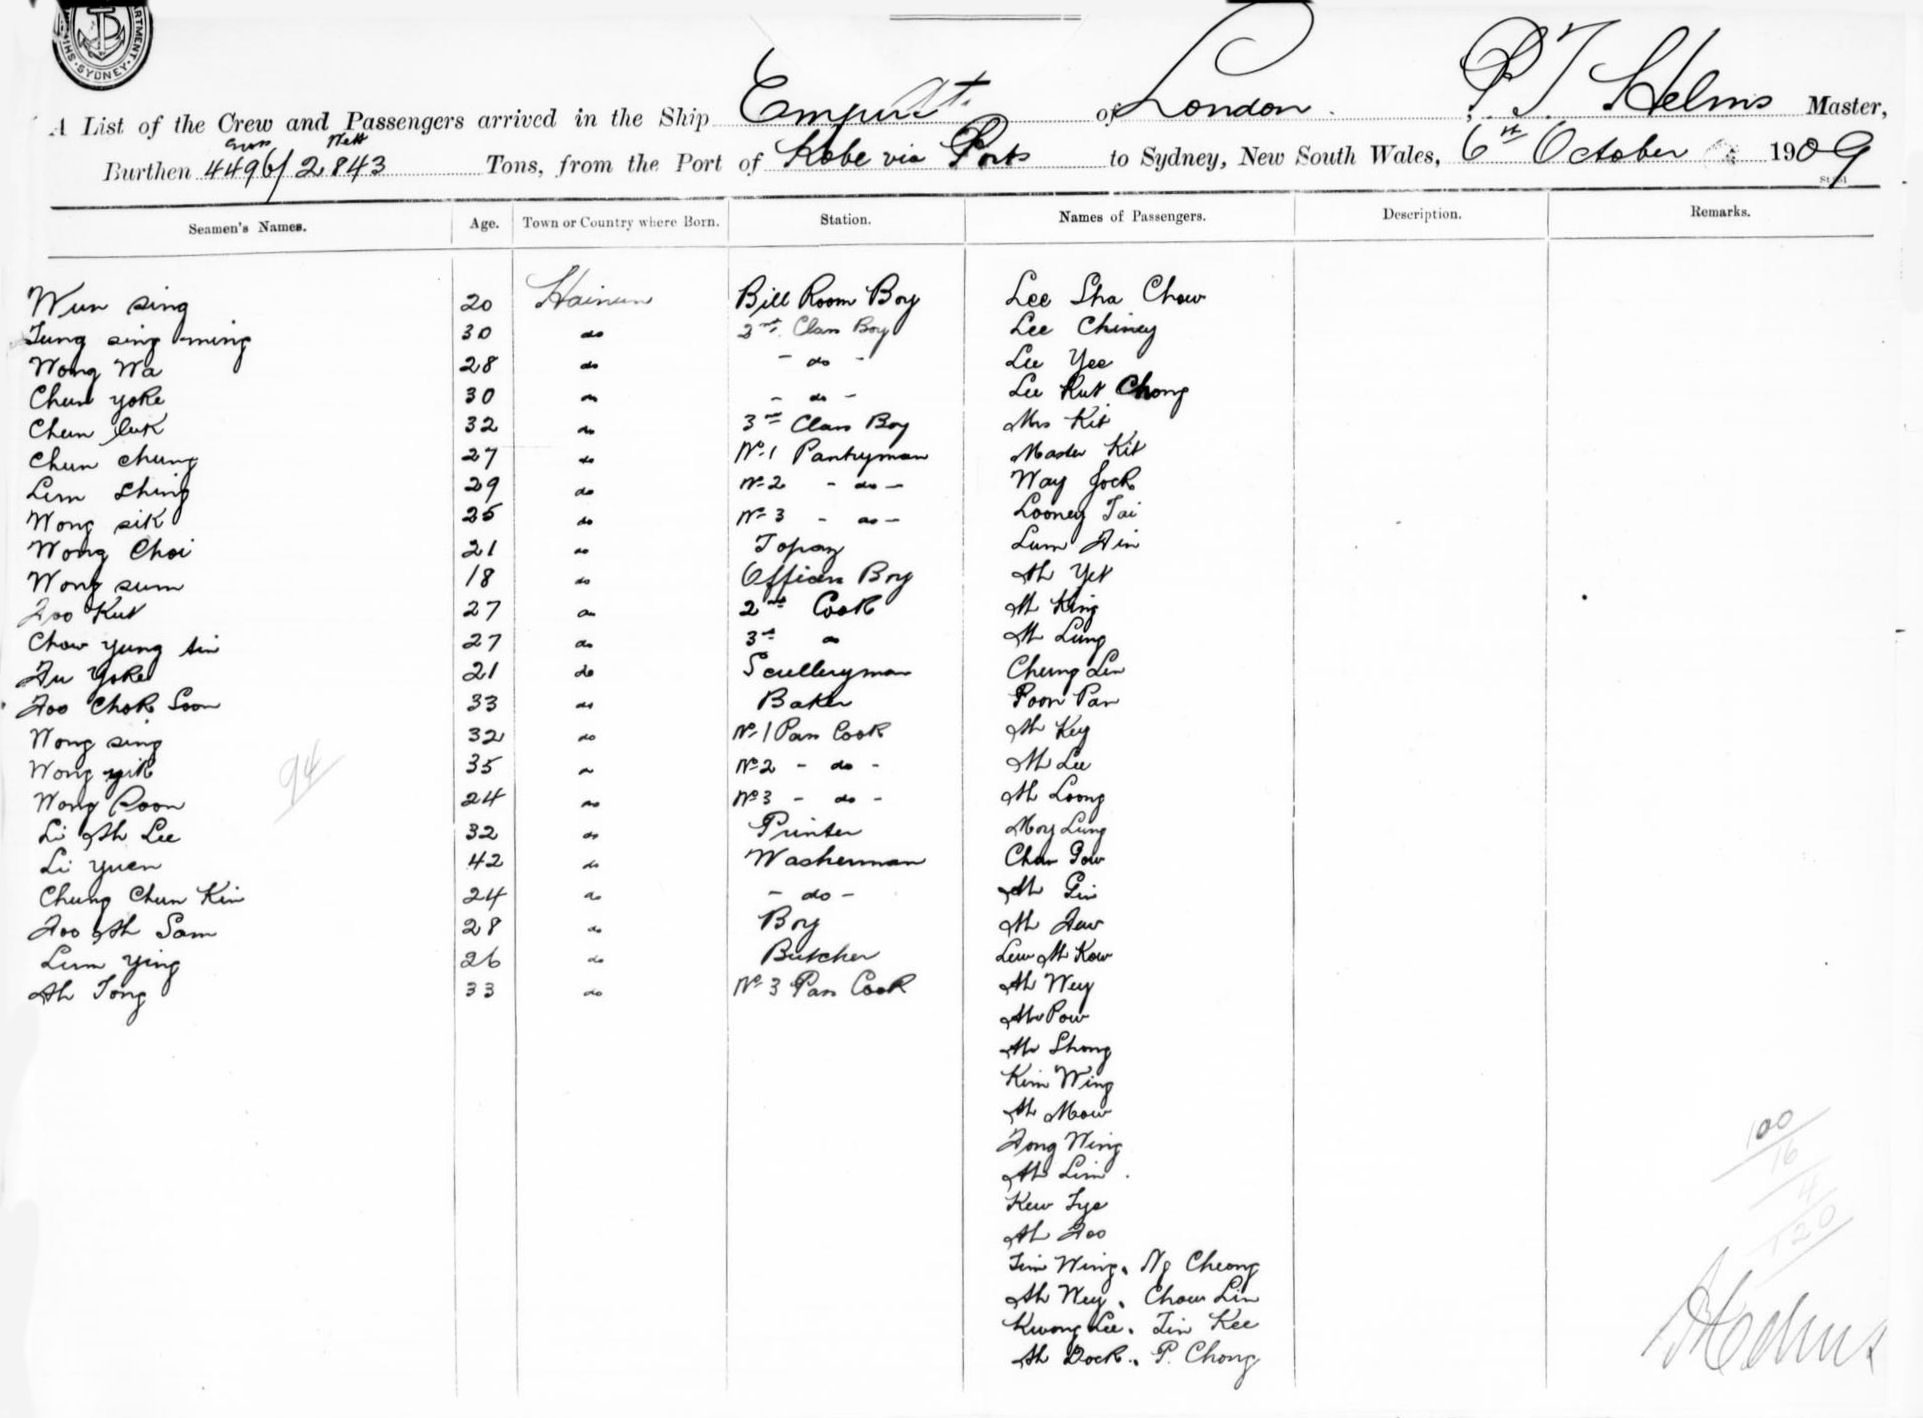 SYDNEY
A List of the Crew and Passengers arrived in the Ship Empire St. of London, P T Helms Master,
Gross Nett
Burthen 4496/2843 Tons, from the Port of Kobe via Ports to Sydney, New South Wales, 6th October 1909
Seamen's Names. Age. Town or Country where Born. Station. Names of Passengers. Description. Remarks.
Wun sing 20 Hainun Bill Room Boy Lee Sha Chow
Tung sing ming 30 do 2nd Class Boy Lee Chiney
Wong Wa 28 do - do - Lee Yee
Chun yoke 30 do - do - Lee Kut Chong
Chun luk 32 do 3rd Class Boy Mrs Kit
Chun chung 27 do No. 1 Pantryman Master Kit
Lim Ching 29 do No 2 - do - Way Jock
Wong sik 25 do No 3 - do - Looney Tai
Wong Choi 21 do Topaz Lum Fin
Wong sum 18 do Officers Boy Ah Yet
Foo Kut 27 do 2nd Cook Ah King
Chow yung sin 27 do 3rd do Ah Lung
Fu Yoke 21 do Sculleryman Cheng Len
Foo Chok Soon 33 do Baker Poon Pan
Wong sing 32 do No 1 Pan Cook Ah Key
Wong yik 35 do No 2 - do - Ah Lee
94
Wong Poon 24 do No 3 - do - Ah Loong
Li Ah Lee 32 do Printer Moy Lung
Li Yuen 42 do Washerman Chun Gow
Chung Chun Kin 24 do - do - Ah Gin
Foo Ah Sam 28 do Boy Ah Faw
Lum Ying 26 do Butcher Lew Ah Kow
Ah Tong 33 do No 3 Pan Cook Ah Wey
Ah Pow
Ah Shong
Kim Wing
Ah Mow
100
Fong Wing
16
Ah Lim
4
Kew Lye
120
Ah Foo
Tim Wing, Ng Cheong
Ah Wey, Chow Lin
Kwong Lee, Tin Kee
Helms
Ah Dock, P. Chong